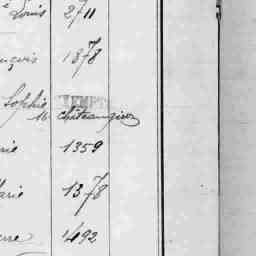 Louis 2711
nçois 1378
Sophie EXEMPT
16 Châteaugiron
rie 1359
Marie 1378
erre 1492